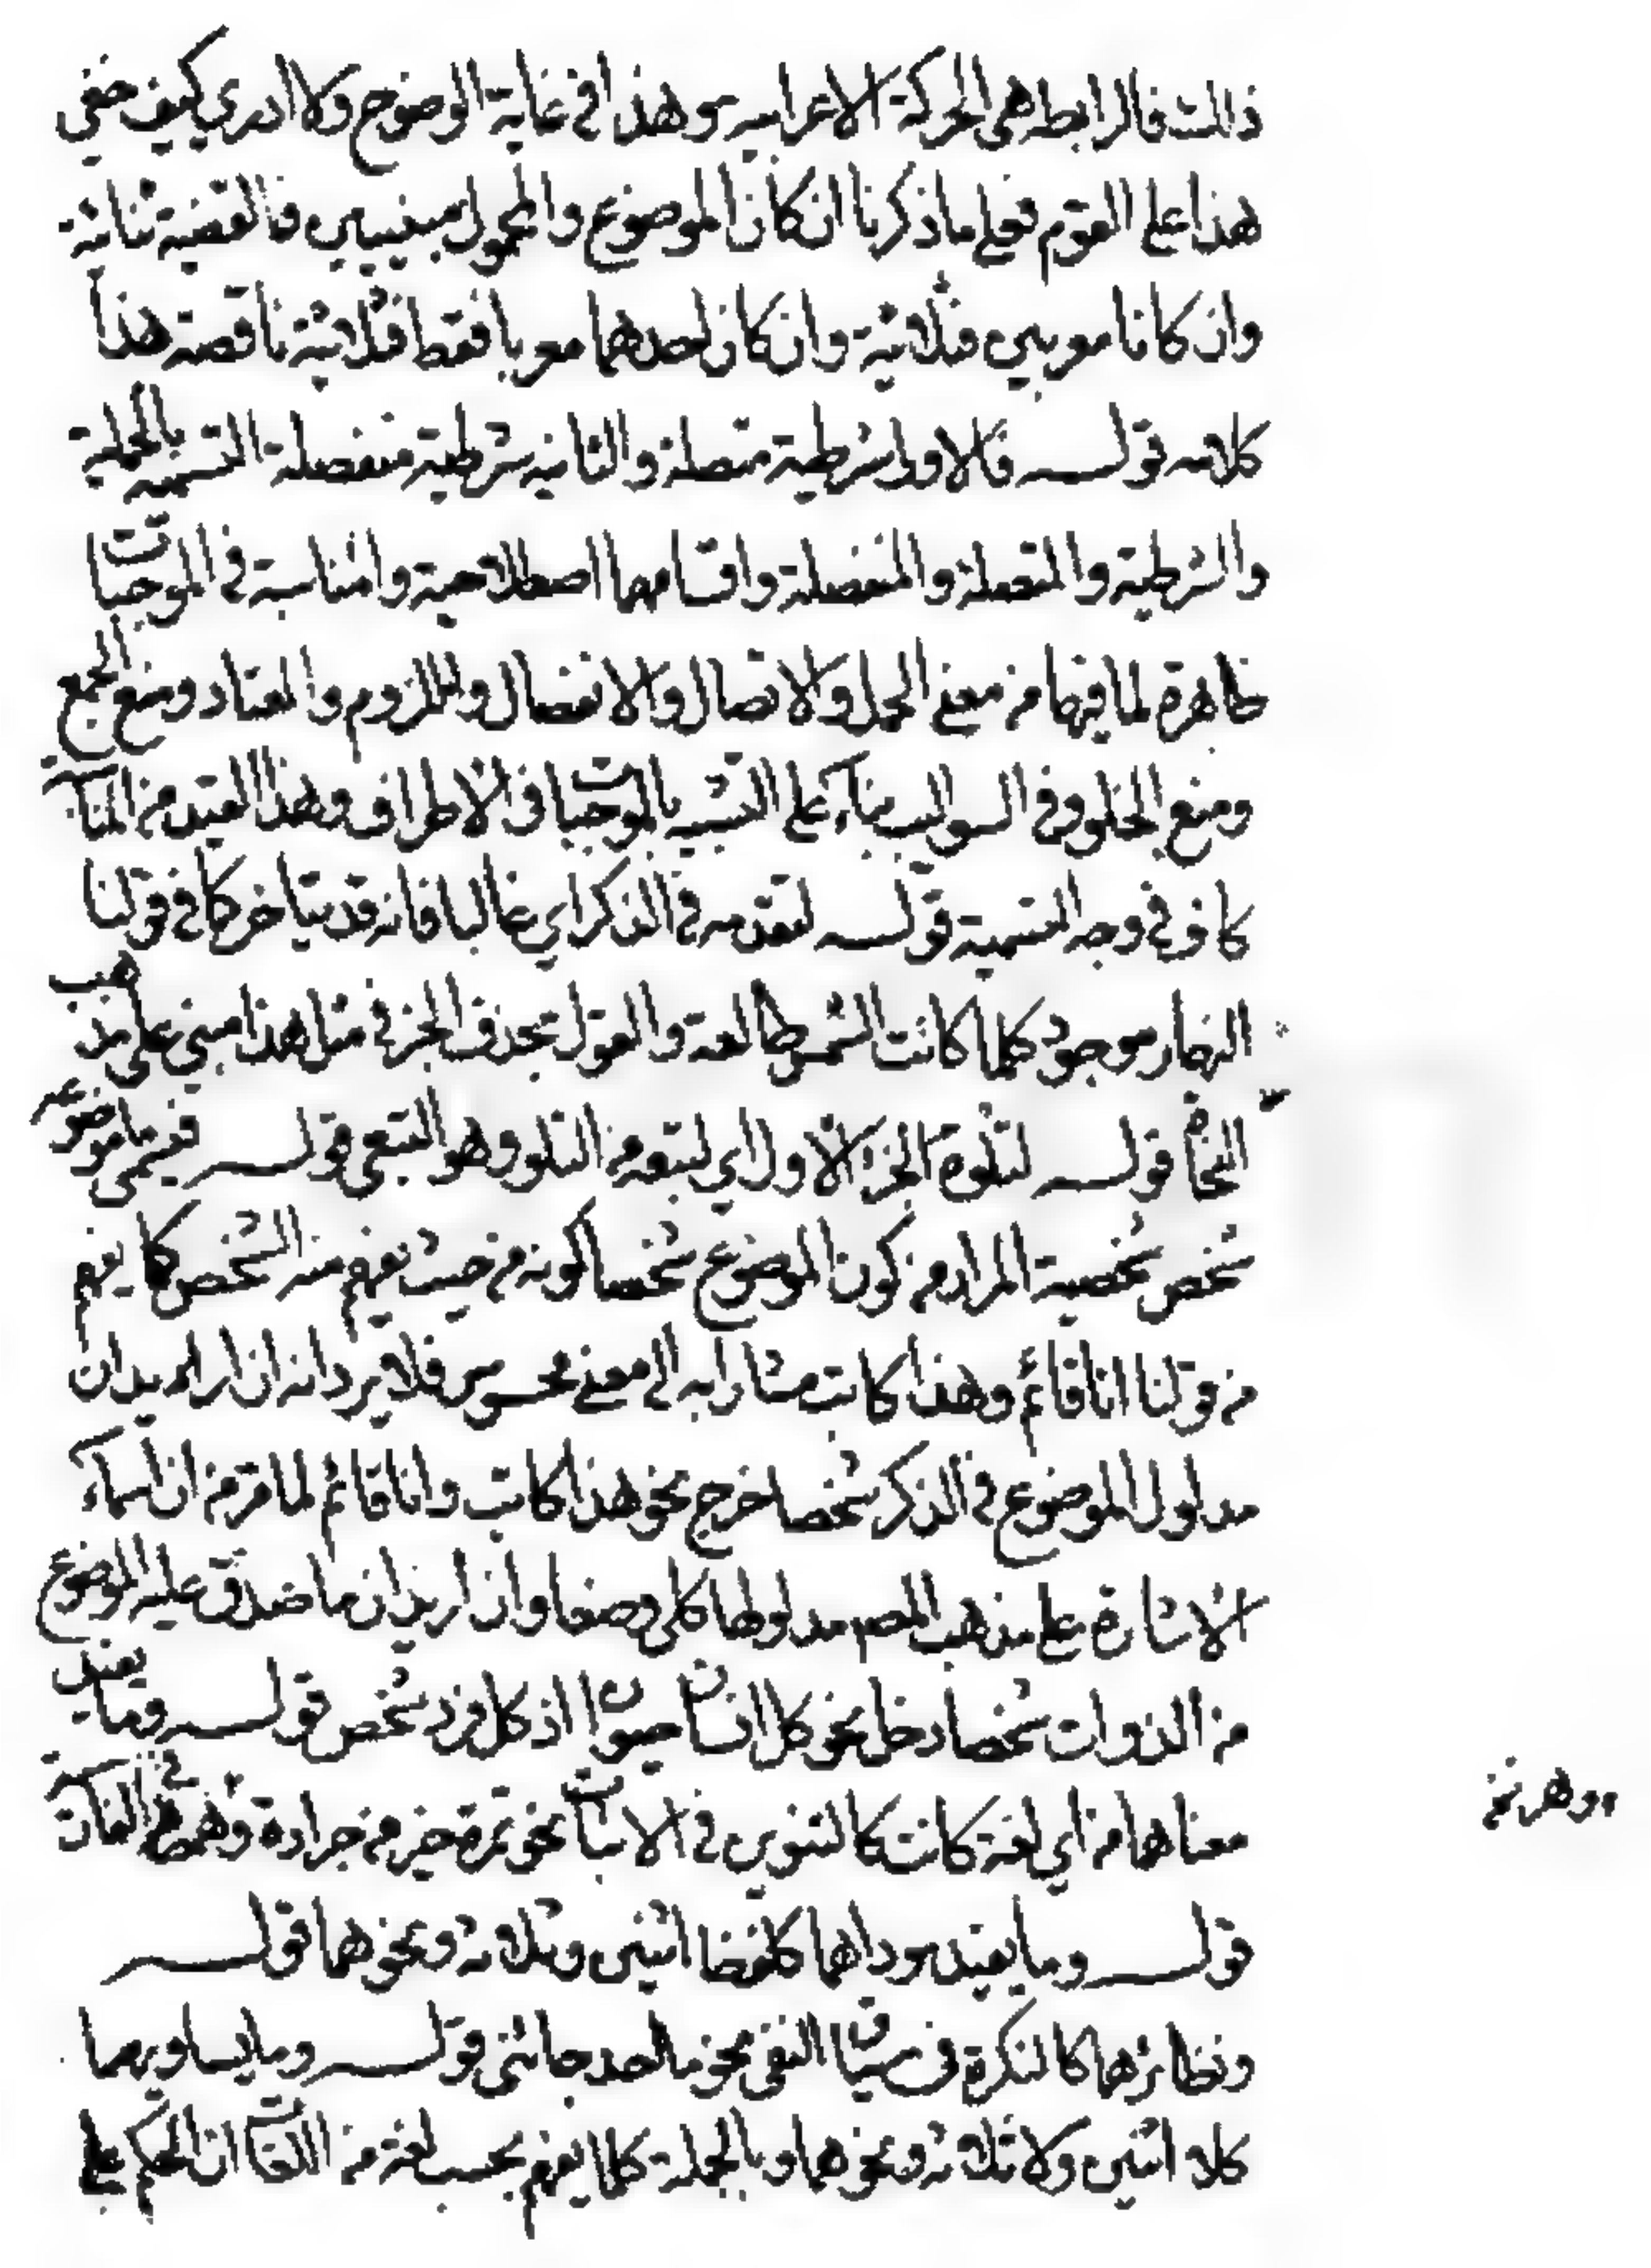 ذلك فالرابطة هي الحركة الاعرابية وهذا في غاية الوضوح ولا ادري كيف خفي
هذا على القوم فعلى ما ذكرنا ان كان الموضوع والمحمول مبنيين فالقضية ثنائية
وان كانا معربين فثلاثية وان كان احدهما معربا فقط فثلاثية ناقصة هذا
كلامه قوله فالاولى شرطية متصلة والثانية شرطية منفصلة التسمية بالحملية
والشرطية والمتصلة والمنفصلة واقسامهما اصطلاحية والمناسبة في الموجبات
ظاهرة لما فيها من معنى الحمل والاتصال والانفصال واللزوم والعناد ومنع الجمع
ومنع الخلو وفي السوالب بناء على التشبيه بالموجبات في الاطراف وهذا القيد من المناسبة
كاف في وجه التسمية قوله لتقدمه في الذكر اي غالبا فانه قد يتاخر كما في قولنا
النهار موجود كلما كانت الشمس طالعة والقول بحذف الجزء في مثل هذا مبني على مذهب
النحاة قوله لتلوه الجزء الاول اي لتبعه من التلو وهو التبعي قوله فيسمى ما موضوعه
شخص شخصية المراد من كون الموضوع شخصا كونه من حيث يفهم منه الشخص كما يفهم
من قولنا انا قائم وهذا كاتب مشارا به الى معنى محسوس فلا يرد انه ان اراد بد ان
مدلول الموضوع في الذكر شخصا خرج نحو هذا كاتب وانا قائم لما مر من ان اسماء
الاشارة على مذهب المصـ مدلولها كلي وضعا وان اريد ان ما صدق عليه الموضوع
من الذوات شخصا دخل نحو كل انسان حيوان اذ كل فرد شخص قوله وما يفيد
معناهما من اي لغة كانت كالتنوين في الاثبات نحو تمرة خير من جرادة في النكات
قوله وما يفيد موداهما كلفظ اثنين وثلاثة ونحوهما قوله
ونظائرهما كالنكرة في سياق النفي نحو ما احد جائني قوله وما يساويهما
كلا اثنين ولا ثلاثة ونحوهما وبالجملة كلما يفهم بحسب لغة من اللغات ان الحكم على